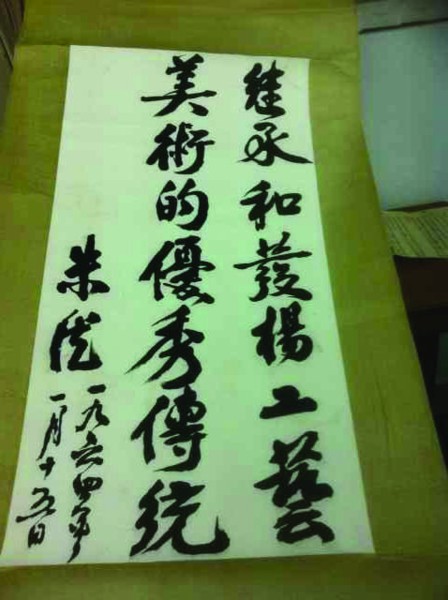 继承和發揚工藝
美術的優秀傳统
朱德
一九六四年
一月十五日